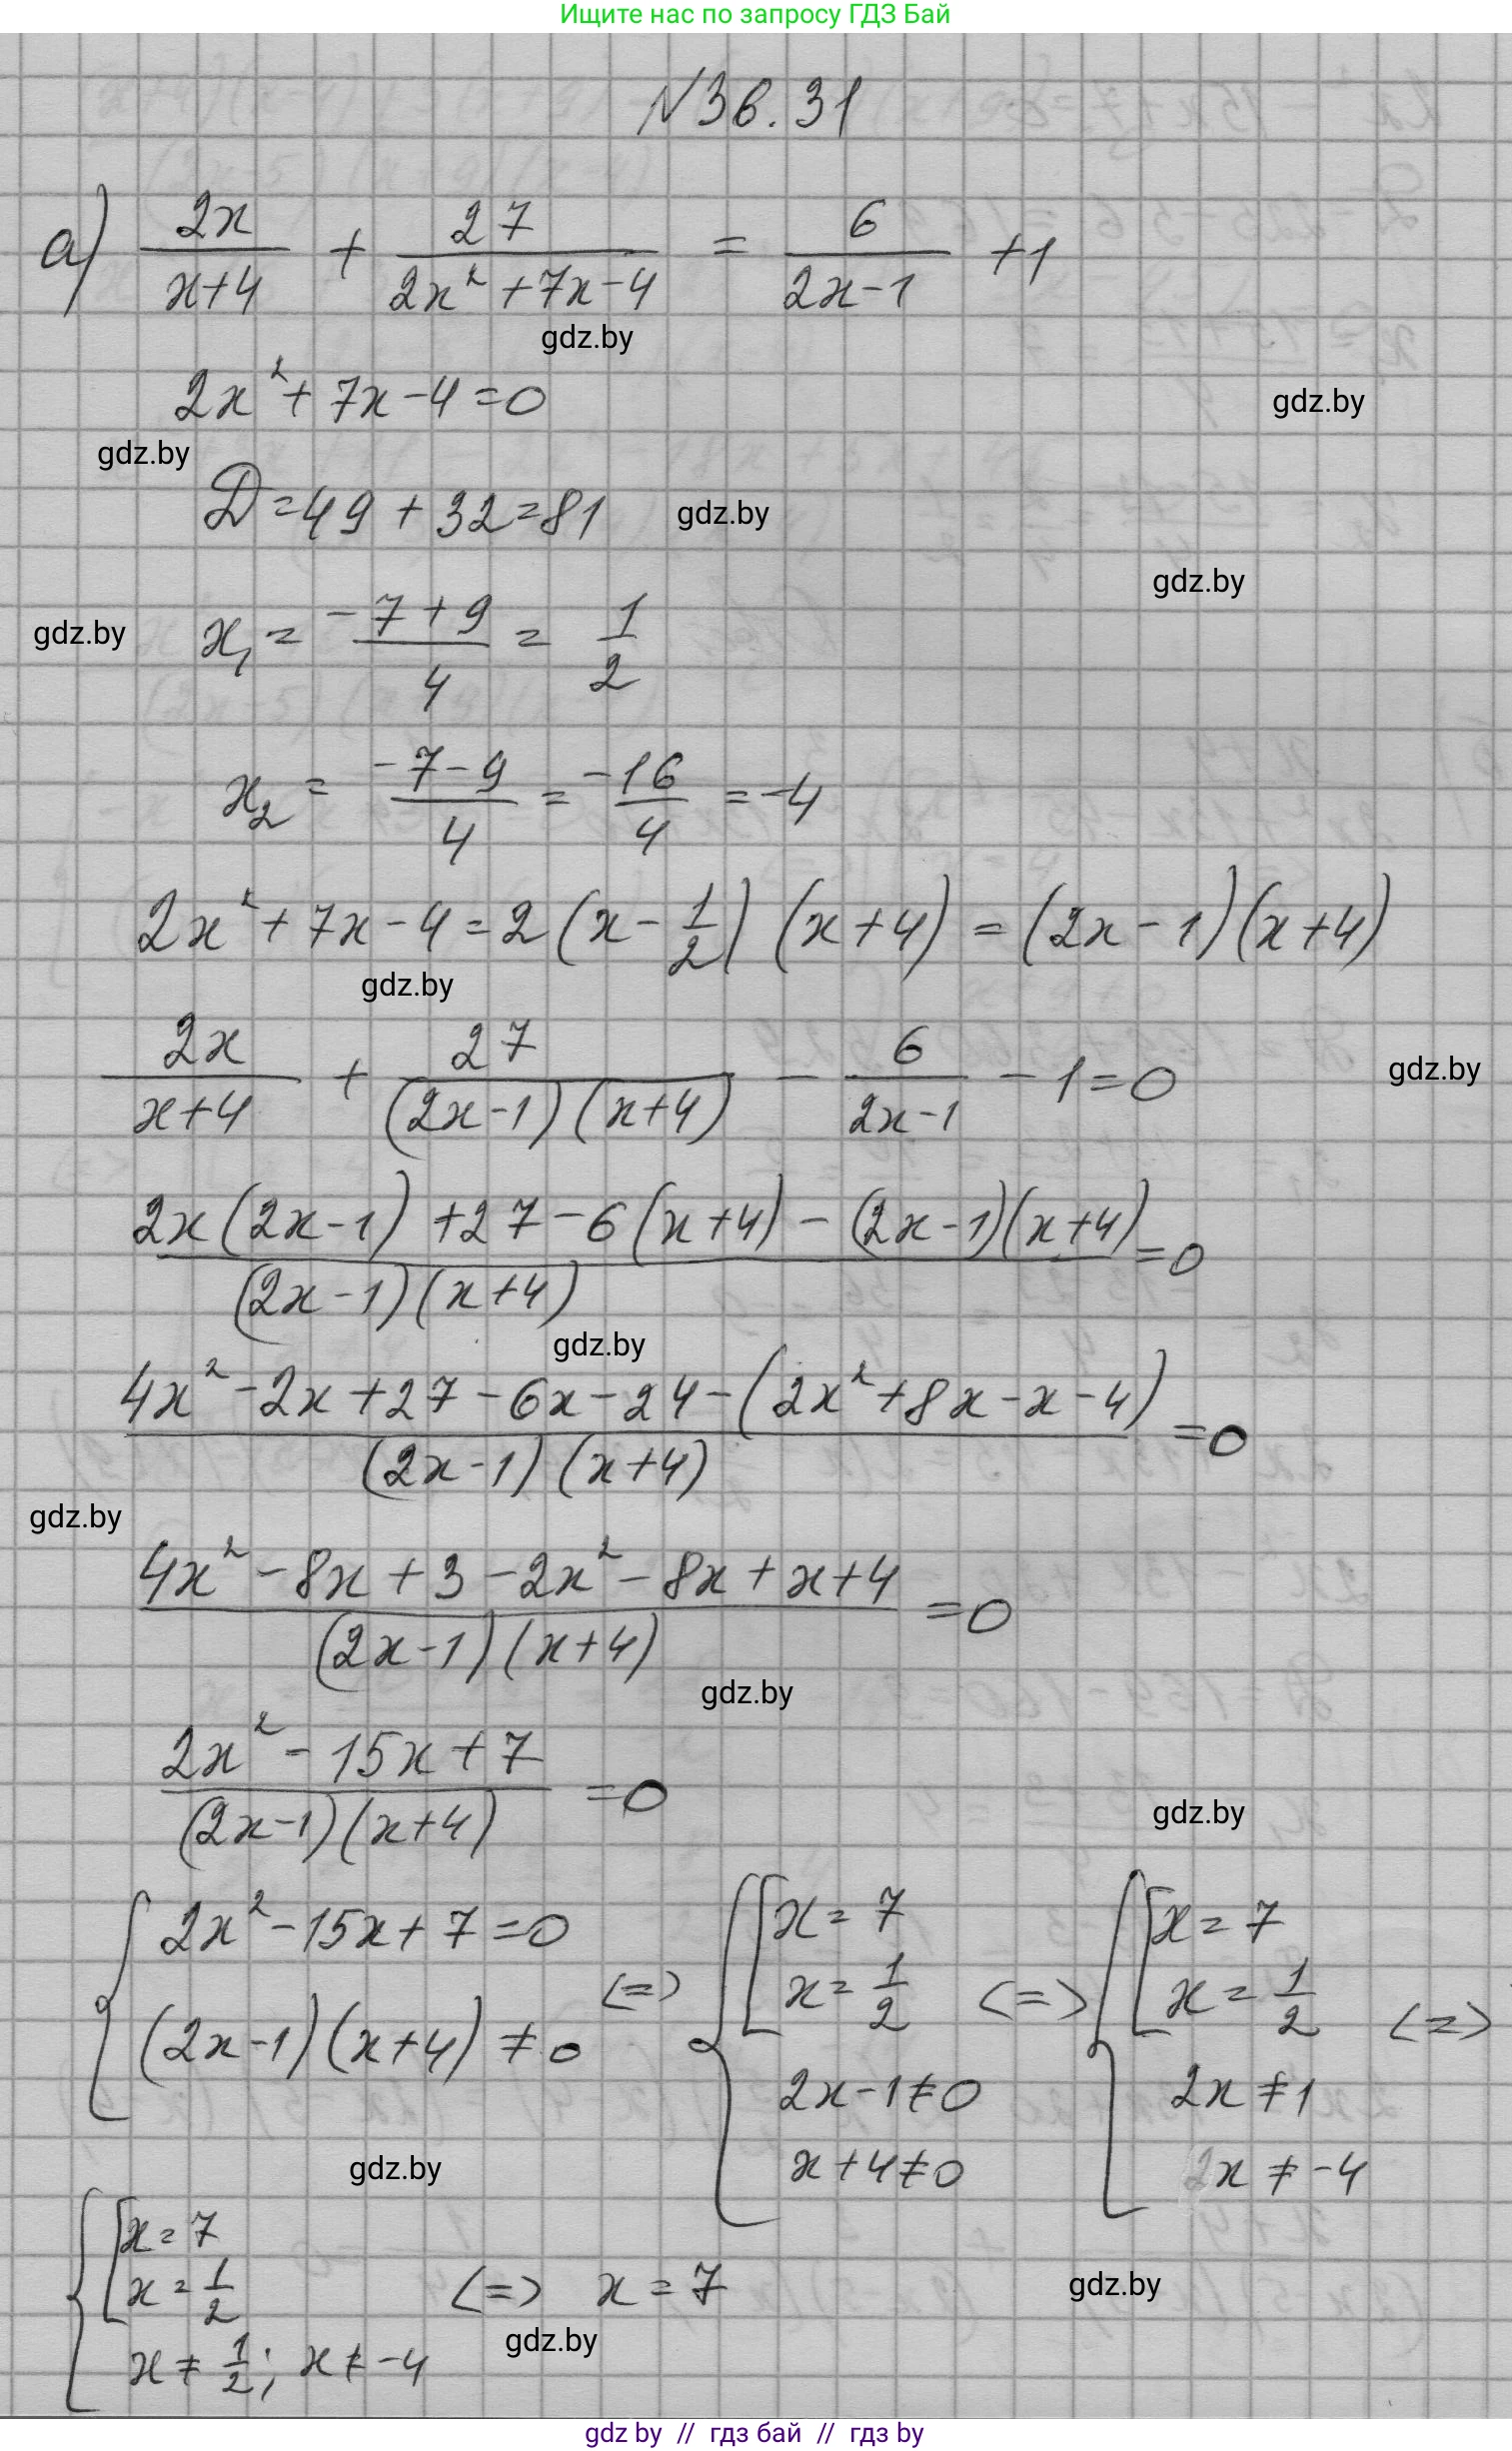 Ищите нас по запросу ГДЗ Бай
№3в.31
а) 2x/(x+4) + 27/(2x²+7x-4) = 6/(2x-1) +1
gdz.by
2x²+7x-4=0
gdz.by
gdz.by
D=49+32=81
gdz.by
gdz.by
gdz.by
x₁ = (-7+9)/4 = 1/2
x₂ = (-7-9)/4 = -16/4 = -4
2x²+7x-4=2(x-1/2)(x+4)=(2x-1)(x+4)
gdz.by
2x/(x+4) + 27/((2x-1)(x+4)) - 6/(2x-1) - 1=0
gdz.by
(2x(2x-1)+27-6(x+4)-(2x-1)(x+4))/((2x-1)(x+4)) =0
gdz.by
(4x²-2x+27-6x-24-(2x²+8x-x-4))/((2x-1)(x+4)) =0
gdz.by
(4x²-8x+3-2x²-8x+x+4)/((2x-1)(x+4)) =0
gdz.by
(2x²-15x+7)/((2x-1)(x+4)) =0
gdz.by
{ 2x²-15x+7=0
(2x-1)(x+4)≠0
<=>
{ [ x=7
x=1/2
2x-1≠0
x+4≠0
<=>
{ [ x=7
x=1/2
2x≠1
x≠-4
<=>
gdz.by
{ [ x=7
x=1/2
x≠1/2; x≠-4
<=> x=7
gdz.by
gdz.by
gdz by // гдз бай // гдз by